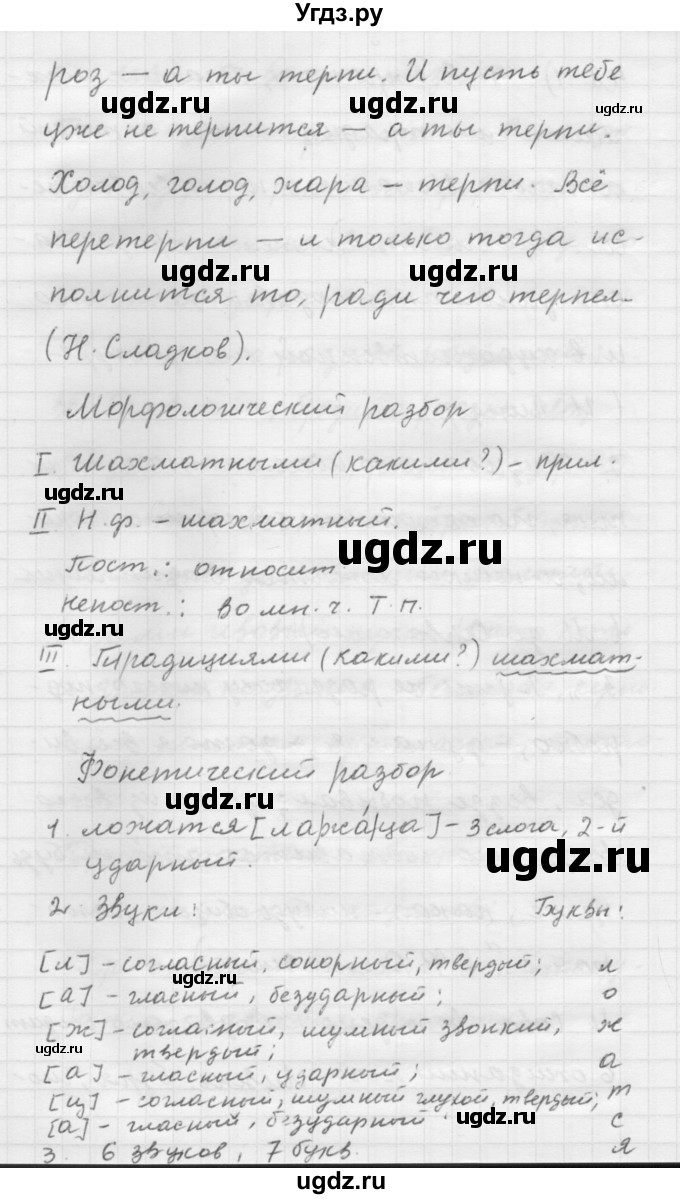 Угдз.ру
роз — а ты терпи. И пусть тебе
уже не терпится — а ты терпи.
Холод, голод, жара — терпи. Всё
перетерпи — и только тогда ис-
полнится то, ради чего терпел.
(Н. Сладков).
Морфологический разбор
I. Шахматными (какими?) – прил.
II. Н.ф. – шахматный.
Пост.: относит.
Непост.: во мн. ч. Т. п.
III. Традициями (какими?) шахмат-
ными.
Фонетический разбор
1. ложатся [лажа́ца] – 3 слога, 2-й
ударный.
2. Звуки: Буквы:
[л] – согласный, сонорный, твердый; л
[а] – гласный, безударный; о
[ж] – согласный, шумный звонкий, ж
твердый;
[а] – гласный, ударный; а
[ц] – согласный, шумный глухой, твердый; т
[а] – гласный, безударный. с
3. 6 звуков, 7 букв. я
ugdz.ru
ugdz.ru
ugdz.ru
ugdz.ru
ugdz.ru
ugdz.ru
ugdz.ru
ugdz.ru
ugdz.ru
ugdz.ru
ugdz.ru
ugdz.ru
ugdz.ru
Угдз.ру